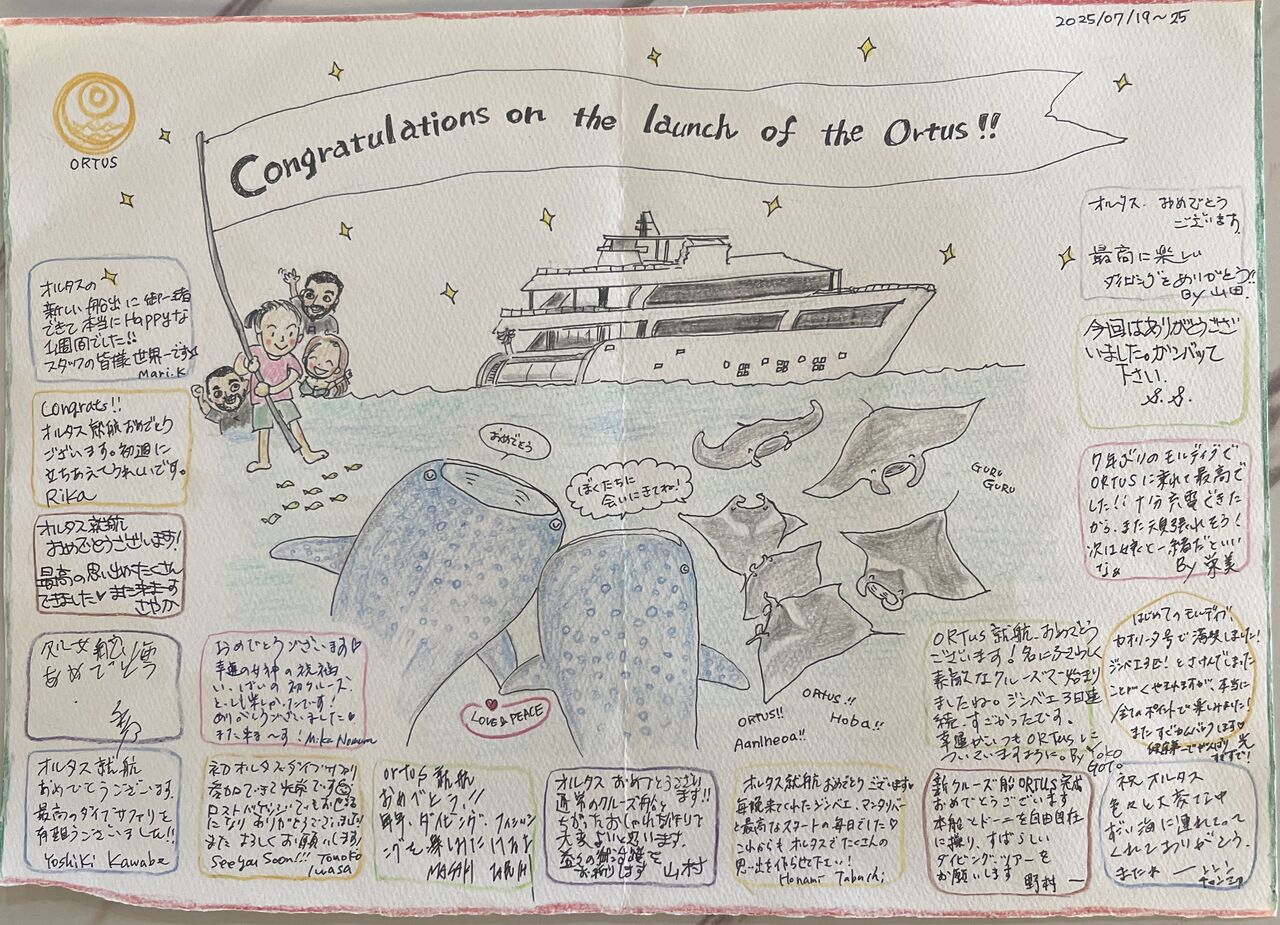 2025/07/19~25
ORTUS
Congratulations on the launch of the Ortus!!
オルタスの
新しい船出に御一緒
できて本当にHappyな
1週間でした!!
スタッフの皆様世界一です
Mari.K
Congrats!!
オルタス就航おめでとう
ございます。初週に
立ちあえてうれしいです。
Rika
オルタス就航
おめでとうございます!
最高の思い出がたくさん
できました♥また来ます
さやか
処女航海
おめでとう
オルタス就航
おめでとうございます。
最高のダイブサファリを
有難うございました!!
Yoshiki Kawabe
おめでとうございます♡
幸運の女神の祝福
いっぱいの初クルーズ
とっても楽しかったです!
ありがとうございました♥
また来ま〜す! Mika Nomura
初オルタスダイブサファリ
参加できて光栄です
ロストバゲッジでもお世話
になりありがとうございました
また よろしくお願いします
See you Soon!! Tomoko
Iwasa
ortus 就航
おめでとう!!
ダイビング、フィッシン
グを
MASAKI
オルタス おめでとうござい
ます!!
通常のクルーズ船と
ちがったおしゃれな作りで
大変よいと思います。
益々の御活躍を
お祈りします 山村
オルタス就航おめでとうございます♥
毎晩来てくれたジンベエ、マンタリバー
と最高なスタートの毎日でした♡
これからも オルタスでたくさんの
思い出を作らせて下さい!
Honami Tabuchi
新クルーズ船ORTUS完成
おめでとうございます
本船とドーニを自由自在
に操り、すばらしい
ダイビングツアーを
お願いします 野村 一
祝 オルタス
色々と大変な中
すばらしい海に連れてって
くれてありがとう。
またね
おめでとう
ぼくたちに
会いにきてね!
LOVE & PEACE
GURU
GURU
ORTUS!!
Hoba!!
ORTUS!!
Aanlheoa!!
オルタス おめでとう
ございます。
最高に楽しい
ダイビングをありがとう!!
BY 山田.
今回はありがとうござ
いました。ガンバッて
下さい.
S. S.
7年ぶりのモルディブで
ORTUSに乗れて最高で
した!! 十分充電できた
から、また頑張れそう!
次は嫁と一緒だといい
なぁ By 栄美
ORTUS 就航、おめでとう
ございます! 名にふさわしく
素敵なクルーズで始まり
ましたね。ジンベエ3日連
続、すごかったです。
幸運がいつもORTUSに
ついていますように。By Yoko
GOTO
はじめてのモルディブ、
ジンベエ3匹! とさけんでました
ことがくやまれますが、本当に
全てのポイントで楽しみました!